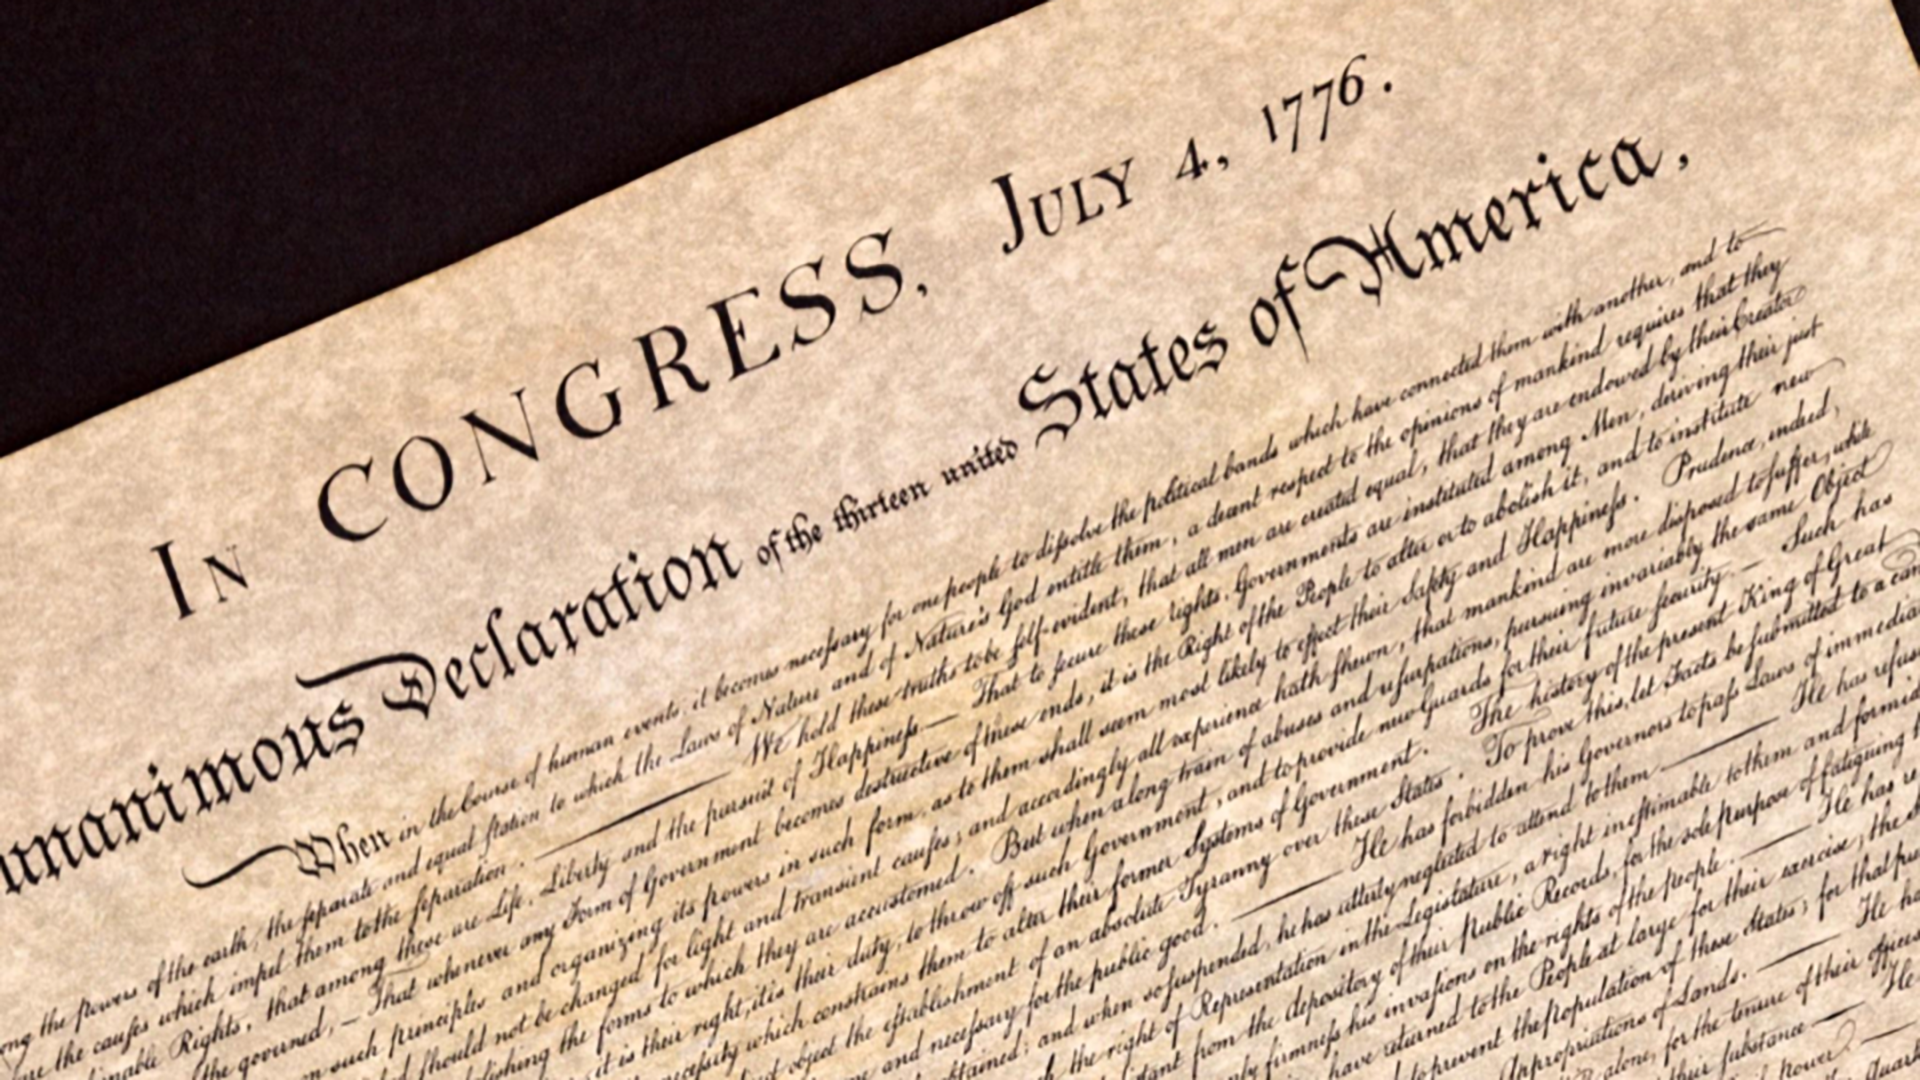 In CONGRESS, July 4, 1776.
unanimous Declaration of the thirteen united States of America,
When in the Course of human events, it becomes necessary for one people to dissolve the political bands which have connected them with another, and to
the powers of the earth, the separate and equal station to which the Laws of Nature and of Nature's God entitle them, a decent respect to the opinions of mankind requires that they
the causes which impel them to the separation. —— We hold these truths to be self-evident, that all men are created equal, that they are endowed by their Creator
Rights, that among these are Life, Liberty and the pursuit of Happiness — That to secure these rights, Governments are instituted among Men, deriving their just
the governed, — That whenever any Form of Government becomes destructive of these ends, it is the Right of the People to alter or to abolish it, and to institute new
such principles and organizing its powers in such form, as to them shall seem most likely to effect their Safety and Happiness. Prudence, indeed,
should not be changed for light and transient causes; and accordingly all experience hath shewn, that mankind are more disposed to suffer, while
the forms to which they are accustomed. But when a long train of abuses and usurpations, pursuing invariably the same Object
it is their right, it is their duty, to throw off such Government, and to provide new Guards for their future security. — Such has
necessity which constrains them to alter their former Systems of Government. The history of the present King of Great
object the establishment of an absolute Tyranny over these States. To prove this, let Facts be submitted to a can
and necessary for the public good. —— He has forbidden his Governors to pass Laws of immedia
obtained; and when so suspended, he has utterly neglected to attend to them —— He has refus
the right of Representation in the Legislature, a right inestimable to them and formid
from the depository of their Public Records, for the sole purpose of fatiguing
firmness his invasions on the rights of the people. —— He has re
have returned to the People at large for their exercise; the
to prevent the population of these States; for that pur
Appropriations of Lands. —— He ha
alone, for the tenure of their offices
their substance — He
Power. —
Quart